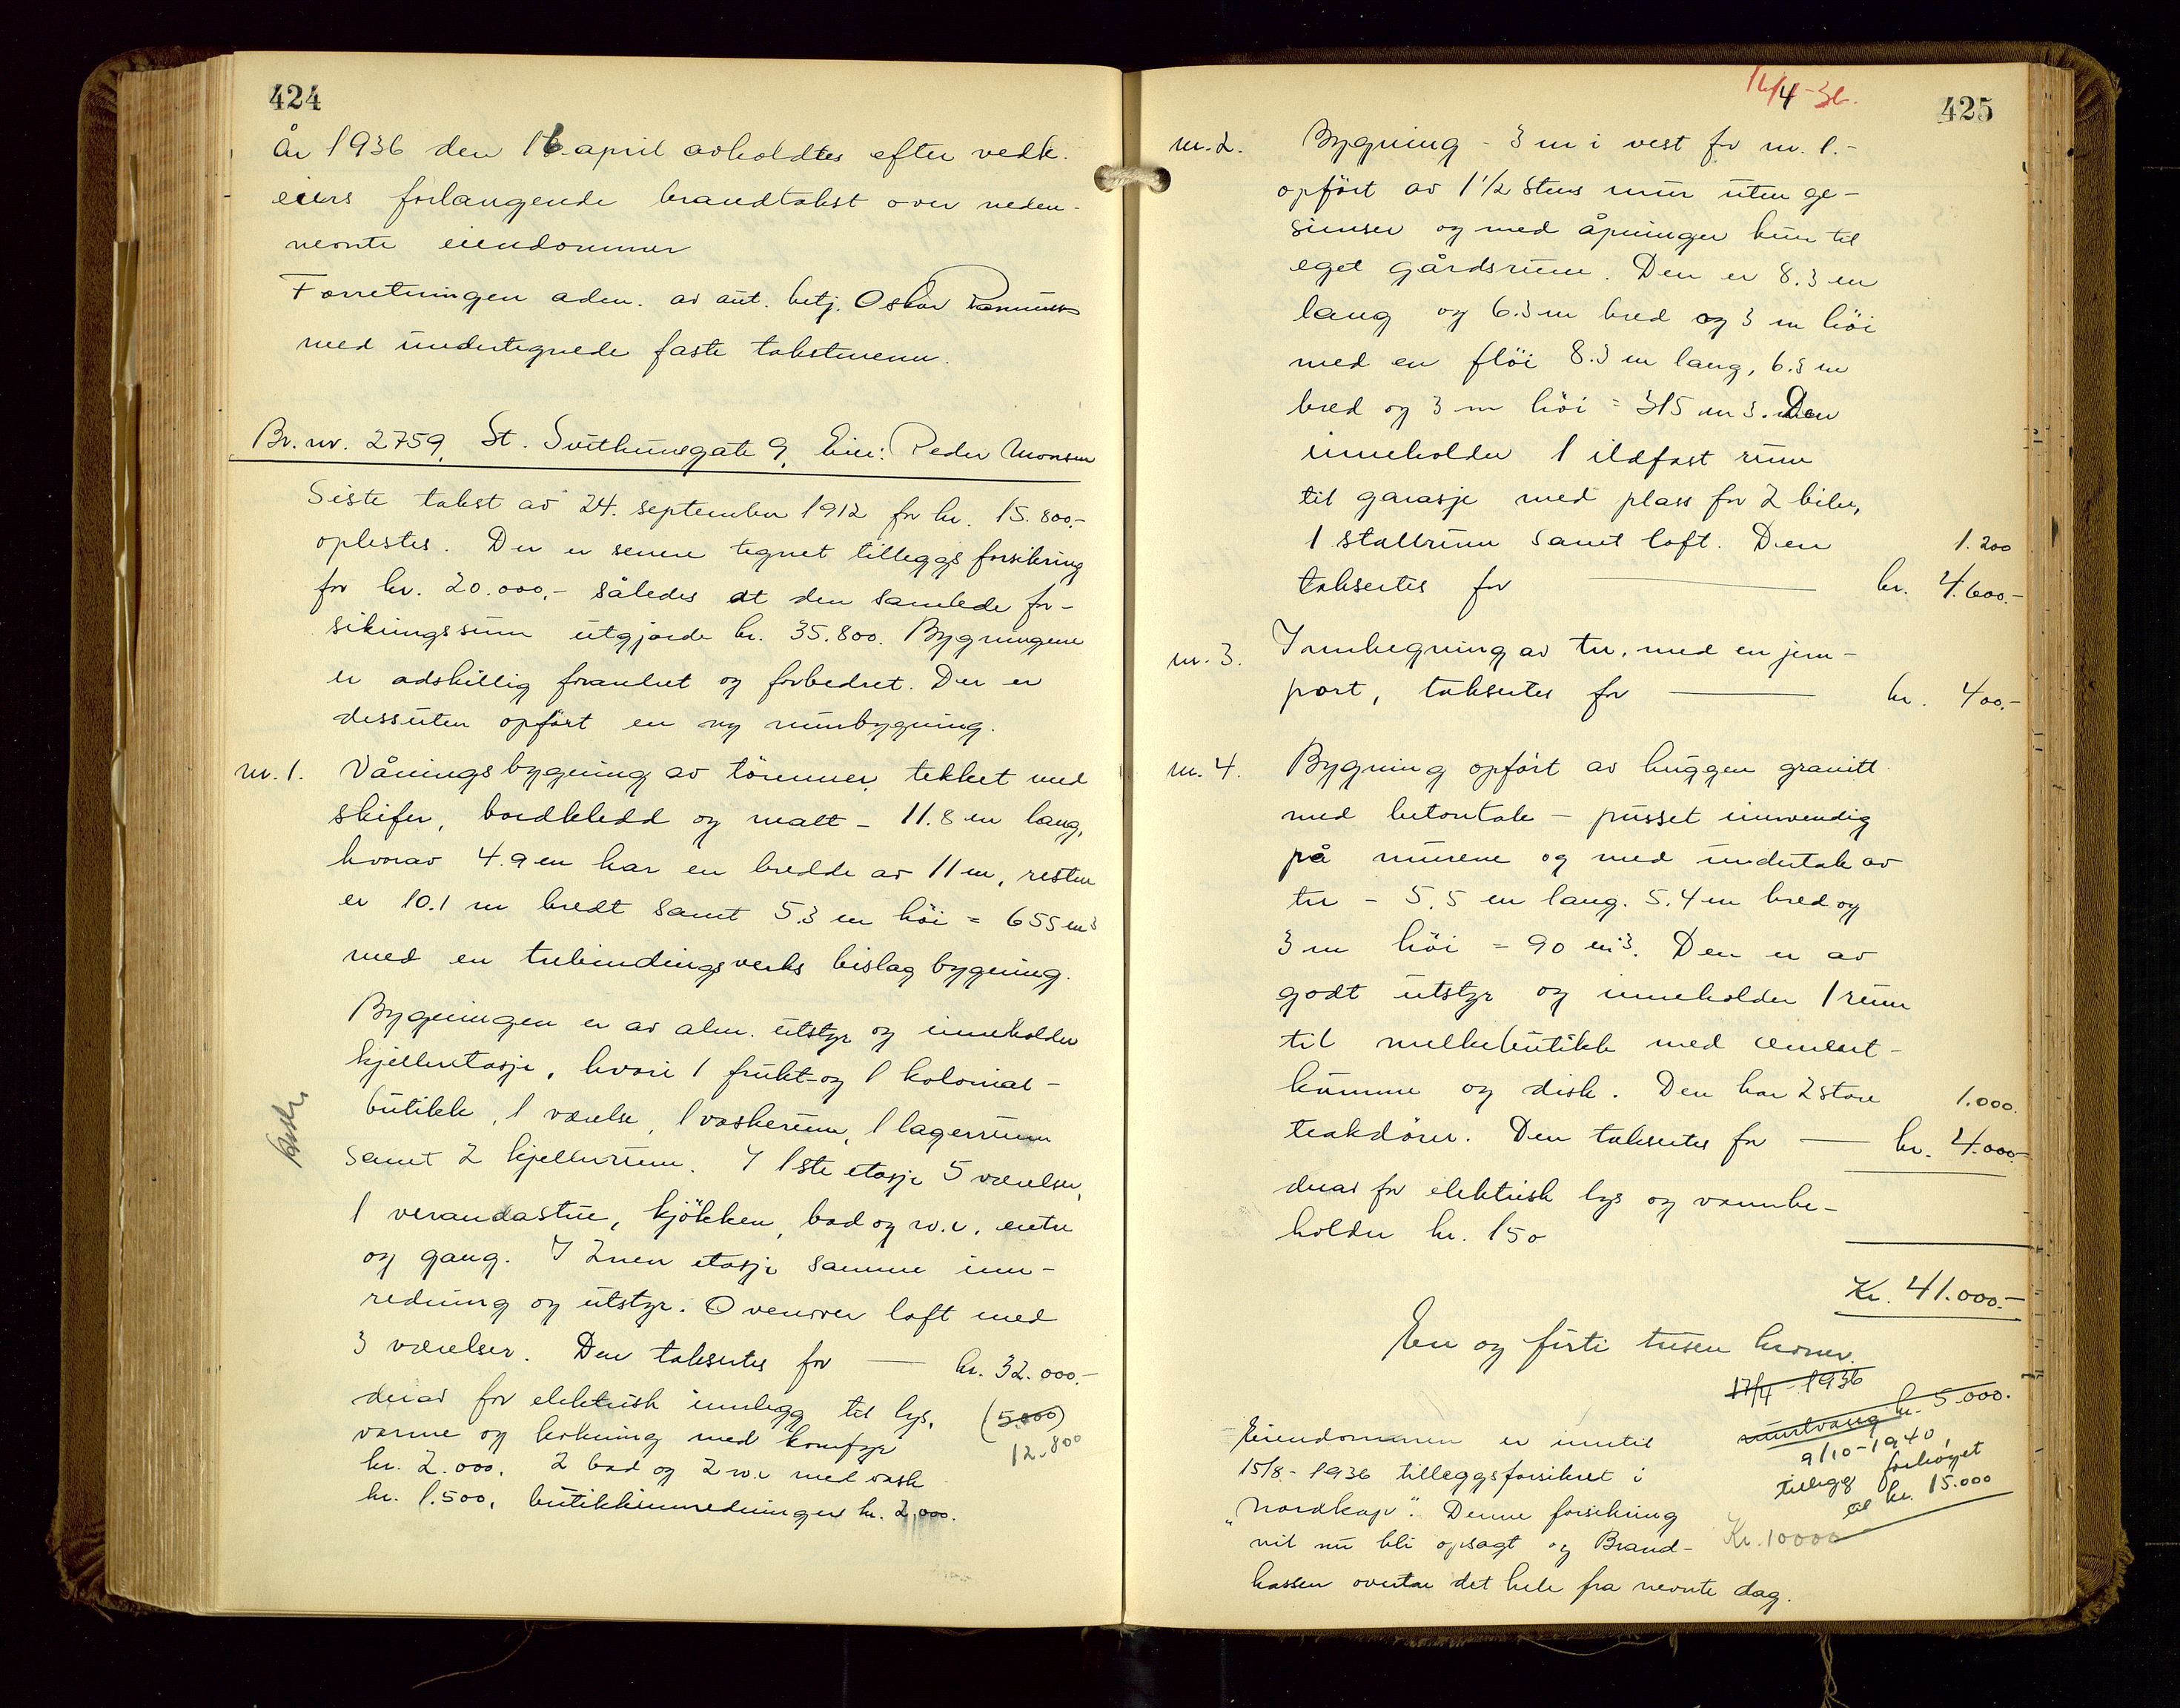 424
År 1936 den 16. april avholdtes efter vedk.
eiers forlangende brandtakst over neden-
nevnte eiendommer
Forretningen adm. av aut. betj. Oskar Rasmussen
med undertegnede faste takstmenn.
Br. nr. 2759, St. Svithunsgate 9, Eier: Peder Monsen
Siste takst av 24. september 1912 for kr. 15.800.-
oplestes. Der er senere tegnet tilleggsforsikring
for kr. 20.000,- således at den samlede for-
sikringssum utgjorde kr. 35.800. Bygningene
er adskillig forandret og forbedret. Der er
dessuten opført en ny murbygning.
nr. 1. Våningsbygning av tømmer, tekket med
skifer, bordkledd og malt - 11.8 m lang,
hvorav 4.9 m har en bredde av 11 m, resten
er 10.1 m bredt samt 5.3 m höi = 655 m3
med en trebindingsverks bislagbygning.
Bygningen er av alm. utstyr og inneholder
kjelleretasje, hvori 1 frukt- og 1 kolonial-
butikk, 1 værelse, 1 vaskerum, 1 lagerrum
samt 2 kjellerrum. I 1ste etasje 5 værelser,
1 verandastue, kjökken, bad og w.c, entre
og gang. I 2nen etasje samme inn-
redning og utstyr. Ovenover loft med
3 værelser. Den takseres for — kr. 32.000.-
derav for elektrisk innlegg til lys, (5.000)
varme og kokning med komfyr 12.800
kr. 2.000, 2 bad og 2 w.c med vask
kr. 1.500, butikkinnredninger kr. 2.000.
16/4-36.
425
nr. 2. Bygning - 3 m i vest for nr. 1.-
opført av 1 1/2 stens mur uten ge-
simser og med åpninger kun til
eget gårdsrum. Den er 8.3 m
lang og 6.3 m bred og 3 m höi
med en flöi 8.3 m lang, 6.3 m
bred og 3 m höi = 315 m3. Den
inneholder 1 ildfast rum
til garasje med plass for 2 biler,
1 stallrum samt loft. Den 1.200
takseres for — kr. 4.600.-
nr. 3. Innhegning av tre, med en jern-
port, takseres for — kr. 400.-
nr. 4. Bygning opført av huggen granitt
med betontak - pusset innvendig
på murene og med undertak av
tre - 5.5 m lang. 5.4 m bred og
3 m höi = 90 m3. Den er av
godt utstyr og inneholder 1 rum
til melkebutikk med cement-
kumme og disk. Den har 2 store 1.000.
teakdører. Den takseres for — kr. 4.000.-
derav for elektrisk lys og vannbe-
holder kr. 150
Kr. 41.000.-
En og firti tusen kroner.
17/4-1936
kr. 5.000.
9/10-1940,
tillegg forhøyet
til kr. 15.000
Kr. 10000
Eiendommen er inntil
15/8-1936 tilleggsforsikret i
"Nordkap". Denne forsikring
vil nu bli opsagt og Brand-
kassen overtar det hele fra nevnte dag.